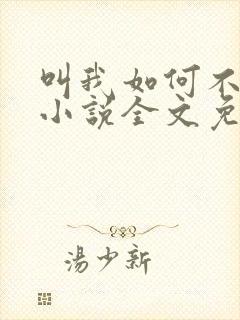 叫我如何不
小说全文免
湯少新